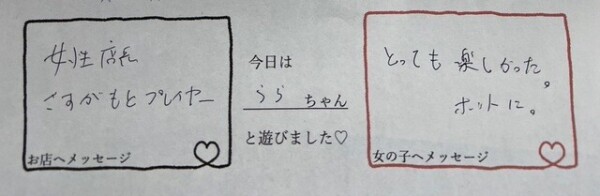 女性店長
さすがもとプレイヤー
お店へメッセージ
今日は
うらちゃん
と遊びました♡
とっても楽しかった。
ホットに。
女の子へメッセージ